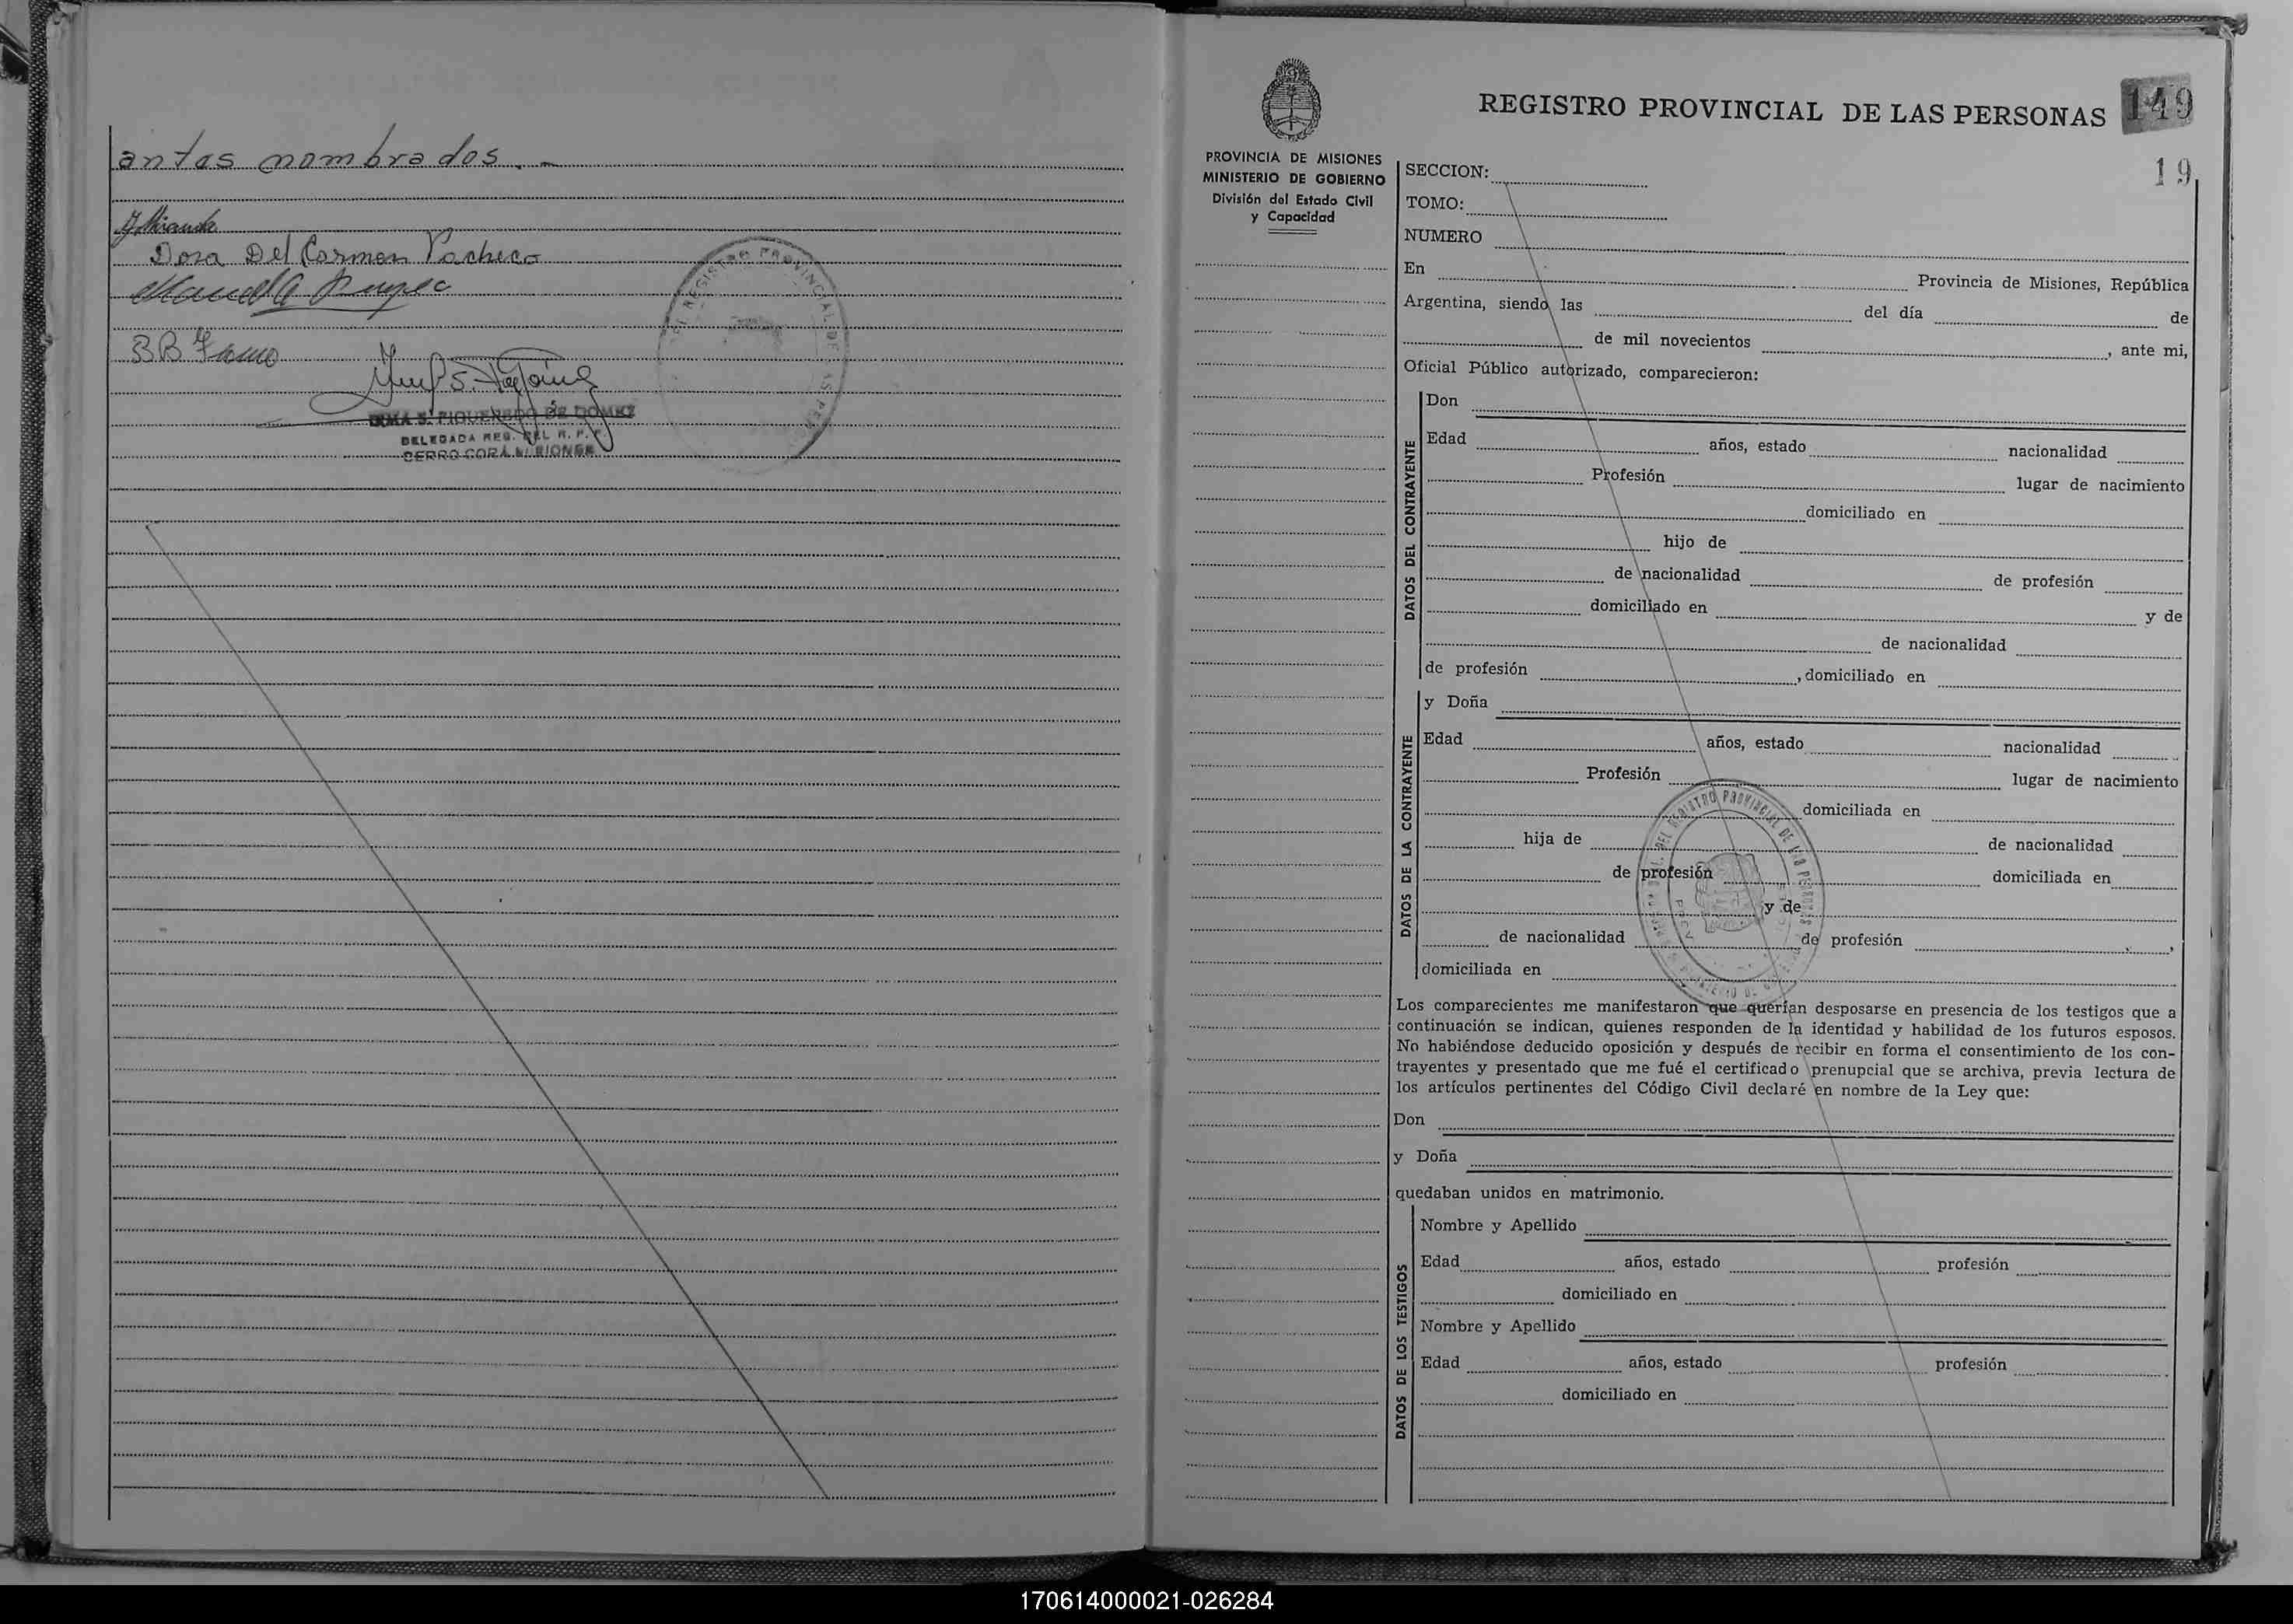 antes nombrados. -
Dora Del Carmen Pacheco
DELEGADA REG. DEL R. P. P.
CERRO CORÁ MISIONES
REGISTRO PROVINCIAL DE
REGISTRO PROVINCIAL DE LAS PERSONAS
149
19
PROVINCIA DE MISIONES
MINISTERIO DE GOBIERNO
División del Estado Civil
y Capacidad
SECCION:
TOMO:
NUMERO
En Provincia de Misiones, República
Argentina, siendo las del día de
de mil novecientos , ante mi,
Oficial Público autorizado, comparecieron:
DATOS DEL CONTRAYENTE
Don
Edad años, estado nacionalidad
Profesión lugar de nacimiento
domiciliado en
hijo de
de nacionalidad de profesión
domiciliado en y de
de nacionalidad
de profesión , domiciliado en
DATOS DE LA CONTRAYENTE
y Doña
Edad años, estado nacionalidad
Profesión lugar de nacimiento
domiciliada en
hija de de nacionalidad
de profesión domiciliada en
y de
de nacionalidad de profesión ,
domiciliada en
DEL REGISTRO PROVINCIAL DE LAS PERSONAS
Los comparecientes me manifestaron que querían desposarse en presencia de los testigos que a
continuación se indican, quienes responden de la identidad y habilidad de los futuros esposos.
No habiéndose deducido oposición y después de recibir en forma el consentimiento de los con-
trayentes y presentado que me fué el certificado prenupcial que se archiva, previa lectura de
los artículos pertinentes del Código Civil declaré en nombre de la Ley que:
Don
y Doña
quedaban unidos en matrimonio.
DATOS DE LOS TESTIGOS
Nombre y Apellido
Edad años, estado profesión
domiciliado en
Nombre y Apellido
Edad años, estado profesión
domiciliado en
170614000021-026284